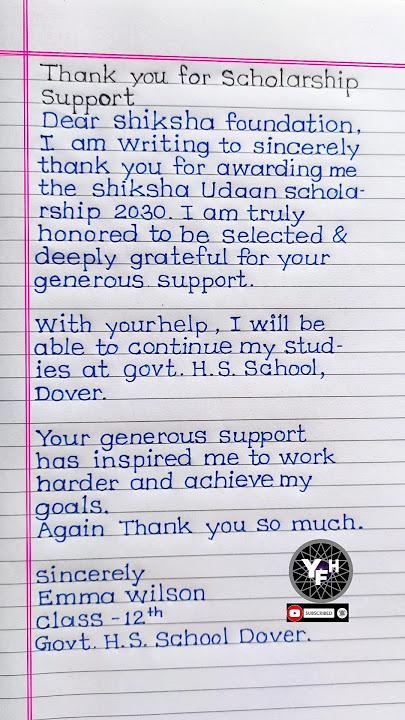 Thank you for Scholarship
Support
Dear shiksha foundation,
I am writing to sincerely
thank you for awarding me
the shiksha Udaan schola-
rship 2030. I am truly
honored to be selected &
deeply grateful for your
generous support.
With yourhelp, I will be
able to continue my stud-
ies at govt. H.S. School,
Dover.
Your generous support
has inspired me to work
harder and achieve my
goals.
Again Thank you so much.
Sincerely
Emma Wilson
Class - 12th
Govt. H.S. School Dover.
YFH
SUBSCRIBED